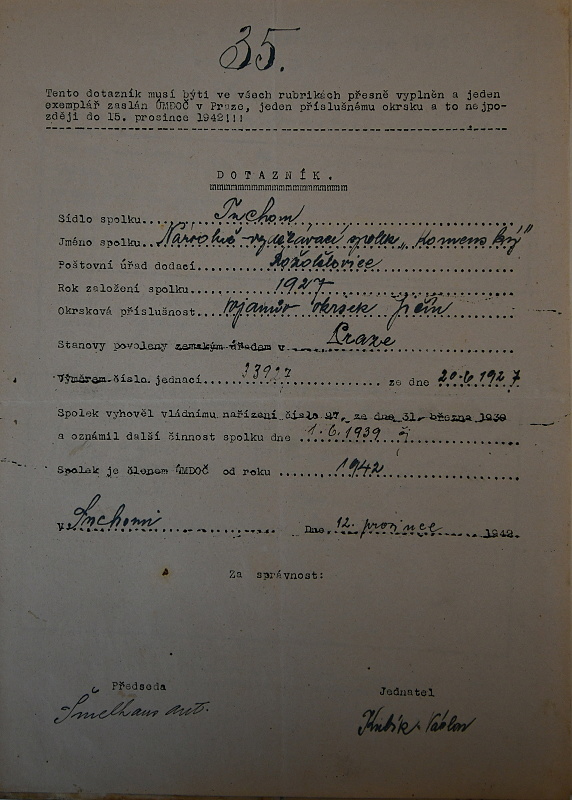 35.
Tento dotazník musí býti ve všech rubrikách přesně vyplněn a jeden
exemplář zaslán ÚMDOČ v Praze, jeden příslušnému okrsku a to nejpo-
zději do 15. prosince 1942!!!
DOTAZNÍK.
Sídlo spolku... Tuchom
Jméno spolku. Národně-vzdělávací spolek „Komenský"
Poštovní úřad dodací.
Rok založení spolku. 1927
Okrsková příslušnost. okrsek Jičín
Stanovy povoleny zemským úřadem v Praze
Výměrem číslo jednací. 23927 ze dne 20.6 1927
Spolek vyhověl vládnímu nařízení číslo 97. ze dne 31. března 1939
a oznámil další činnost spolku dne 1.6.1939
Spolek je členem ÚMDOČ od roku 1942
V. Tuchomi Dne. 12. prosince 1942.
Za správnost:
Předseda Jednatel
Šmelhaus Ant. Kubík Václav